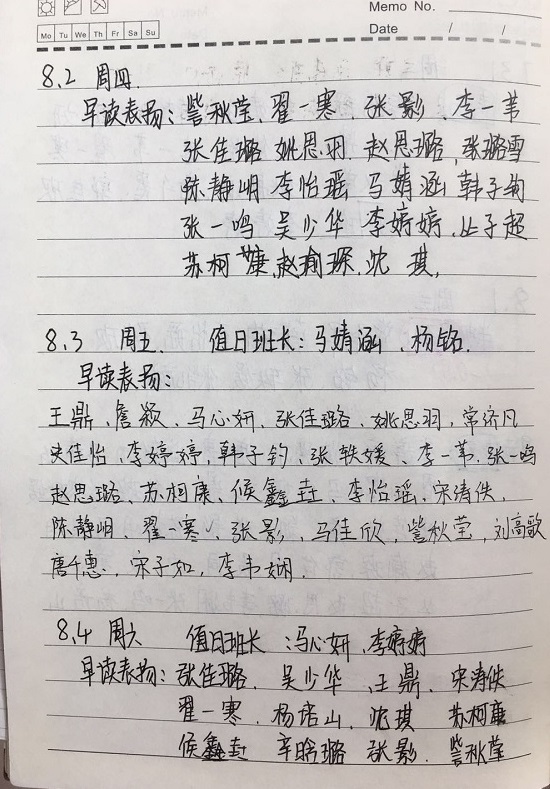 Memo No.
Mo Tu We Th Fr Sa Su
Date / /
8.2 周四.
早读表扬: 訾秋莹. 翟一寒. 张影. 李一苇
张佳璐 姚思羽. 赵思璐. 张璐雪
陈静明 李怡瑶 马婧涵 韩子钧
张一鸣 吴少华 李婷婷. 子超
苏柯康, 赵瑜琛, 沈琪,
8.3 周五. 值日班长: 马婧涵. 杨铭.
早读表扬:
王鼎, 詹颖, 马心妍, 张佳璐, 姚思羽, 常济凡
史佳怡, 李婷婷, 韩子钧, 张轶媛, 李一苇, 张一鸣
赵思璐, 苏柯康, 候鑫垚, 李怡瑶, 宋涛佚,
陈静明, 翟一寒, 张影, 马佳欣, 訾秋莹, 刘高歌
唐千惠, 宋子如, 李韦娴.
8.4 周六 值日班长: 马心妍, 李婷婷
早读表扬: 张佳璐. 吴少华. 王鼎. 宋涛佚
翟一寒. 杨培山. 沈琪 苏柯康
候鑫垚 辛晗璐 张影. 訾秋莹